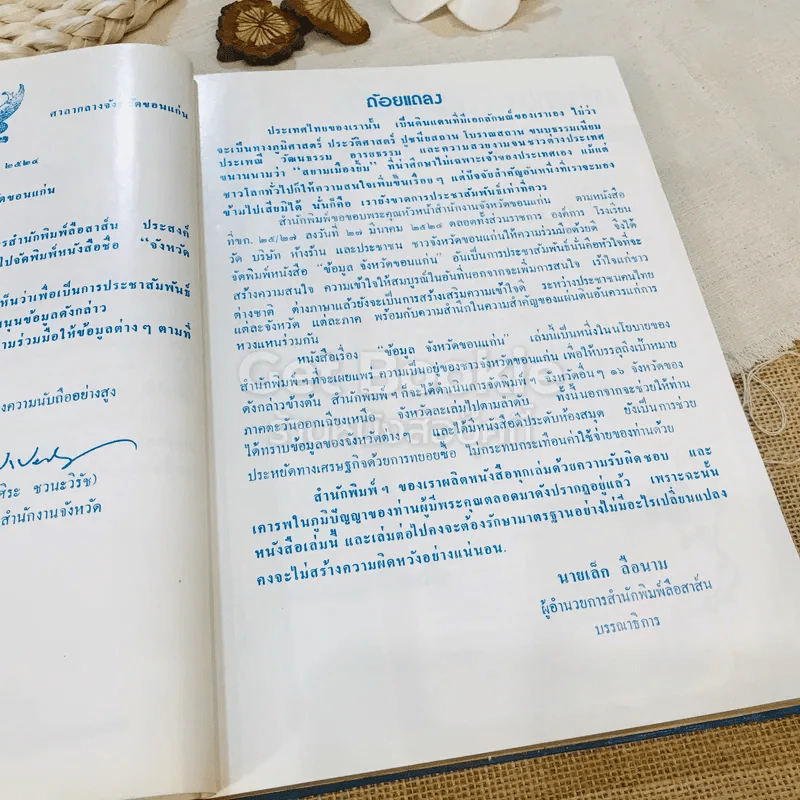 ศาลากลางจังหวัดขอนแก่น
๒๕๒๔
ขอนแก่น
สำนักพิมพ์ลือสาส์น ประสงค์
ไปจัดพิมพ์หนังสือชื่อ “จังหวัด
เห็นว่าเพื่อเป็นการประชาสัมพันธ์
ข้อมูลดังกล่าว
ร่วมมือให้ข้อมูลต่าง ๆ ตามที่
ความนับถืออย่างสูง
ศิระ ชวนะวิรัช)
สำนักงานจังหวัด
ถ้อยแถลง
ประเทศไทยของเรานั้น เป็นดินแดนที่มีเอกลักษณ์ของเราเอง ไม่ว่า
จะเป็นทางภูมิศาสตร์ ประวัติศาสตร์ ปูชนียสถาน โบราณสถาน ขนบธรรมเนียม
ประเพณี วัฒนธรรม อารยธรรม และความสวยงามจนชาวต่างประเทศ
ขนานนามว่า “สยามเมืองยิ้ม” ที่น่าศึกษาไม่เฉพาะเจ้าของประเทศเอง แม้แต่
ชาวโลกทั่วไปก็ให้ความสนใจเพิ่มขึ้นเรื่อย ๆ แต่มีปัจจัยสำคัญอันหนึ่งที่เราจะมอง
ข้ามไปเสียมิได้ นั่นก็คือ เรายังขาดการประชาสัมพันธ์เท่าที่ควร
สำนักพิมพ์ขอขอบพระคุณหัวหน้าสำนักงานจังหวัดขอนแก่น ตามหนังสือ
ที่ขก. ๒๕/๒๗ ลงวันที่ ๒๗ มีนาคม ๒๕๒๔ ตลอดทั้งส่วนราชการ องค์การ โรงเรียน
วัด บริษัท ห้างร้าน และประชาชน ชาวจังหวัดขอนแก่นให้ความร่วมมือด้วยดี จึงได้
จัดพิมพ์หนังสือ “ข้อมูล จังหวัดขอนแก่น” อันเป็นการประชาสัมพันธ์นั่นคือหัวใจที่จะ
สร้างความสนใจ ความเข้าใจให้สมบูรณ์ในอันที่นอกจากจะเพิ่มการสนใจ เข้าใจแก่ชาว
ต่างชาติ ต่างภาษาแล้วยังจะเป็นการสร้างเสริมความเข้าใจดี ระหว่างประชาชนคนไทย
แต่ละจังหวัด แต่ละภาค พร้อมกับความสำนึกในความสำคัญของแผ่นดินอันควรแก่การ
หวงแหนร่วมกัน
หนังสือเรื่อง “ข้อมูล จังหวัดขอนแก่น” เล่มนี้เป็นหนึ่งในนโยบายของ
สำนักพิมพ์ ฯ ที่จะเผยแพร่ ความเป็นอยู่ของชาวจังหวัดขอนแก่น เพื่อให้บรรลุถึงเป้าหมาย
ดังกล่าวข้างต้น สำนักพิมพ์ ฯ ก็จะได้ดำเนินการจัดพิมพ์ ฯ จังหวัดอื่น ๆ ๑๖ จังหวัดของ
ภาคตะวันออกเฉียงเหนือ จังหวัดละเล่มไปตามลำดับ ทั้งนี้นอกจากจะช่วยให้ท่าน
ได้ทราบข้อมูลของจังหวัดต่าง ๆ และได้มีหนังสือดีประดับห้องสมุด ยังเป็นการช่วย
ประหยัดทางเศรษฐกิจด้วยการทยอยซื้อ ไม่กระทบกระเทือนค่าใช้จ่ายของท่านด้วย
สำนักพิมพ์ ฯ ของเราผลิตหนังสือทุกเล่มด้วยความรับผิดชอบ และ
เคารพในภูมิปัญญาของท่านผู้มีพระคุณตลอดมาดังปรากฏอยู่แล้ว เพราะฉะนั้น
หนังสือเล่มนี้ และเล่มต่อไปคงจะต้องรักษามาตรฐานอย่างไม่มีอะไรเปลี่ยนแปลง
คงจะไม่สร้างความผิดหวังอย่างแน่นอน.
นายเล็ก ลือนาม
ผู้อำนวยการสำนักพิมพ์ลือสาส์น
บรรณาธิการ
Get Bookie
ร้านหนังสือบุ๊คกี้